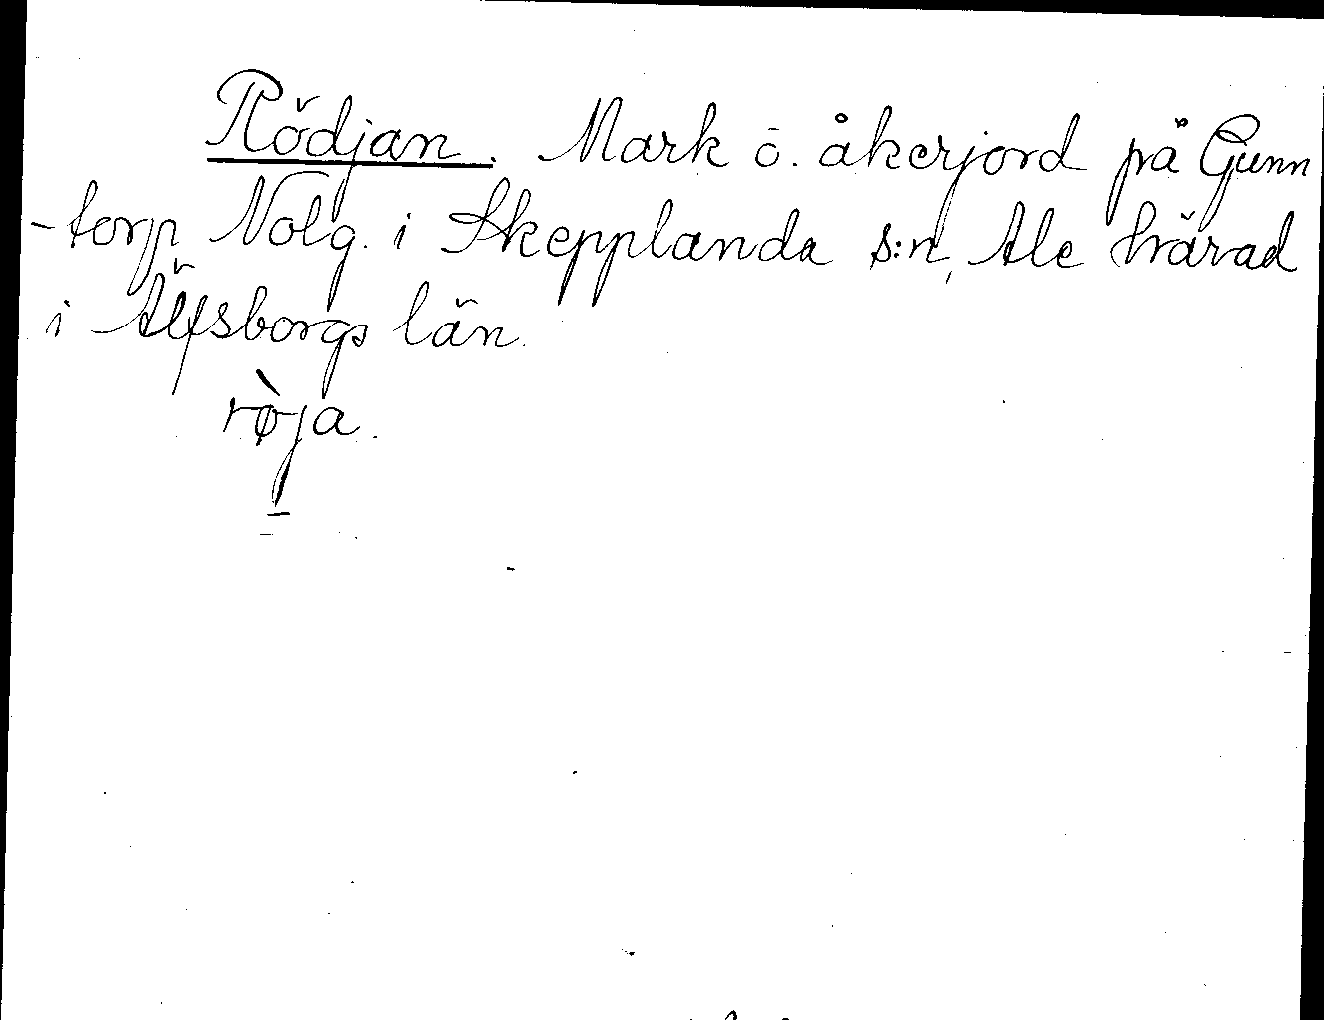 Rödjan. Mark o. åkerjord på Gunn
-torp Nolg. i Skepplanda s:n, Ale härad
i Älfsborgs län.
rø̀ja.